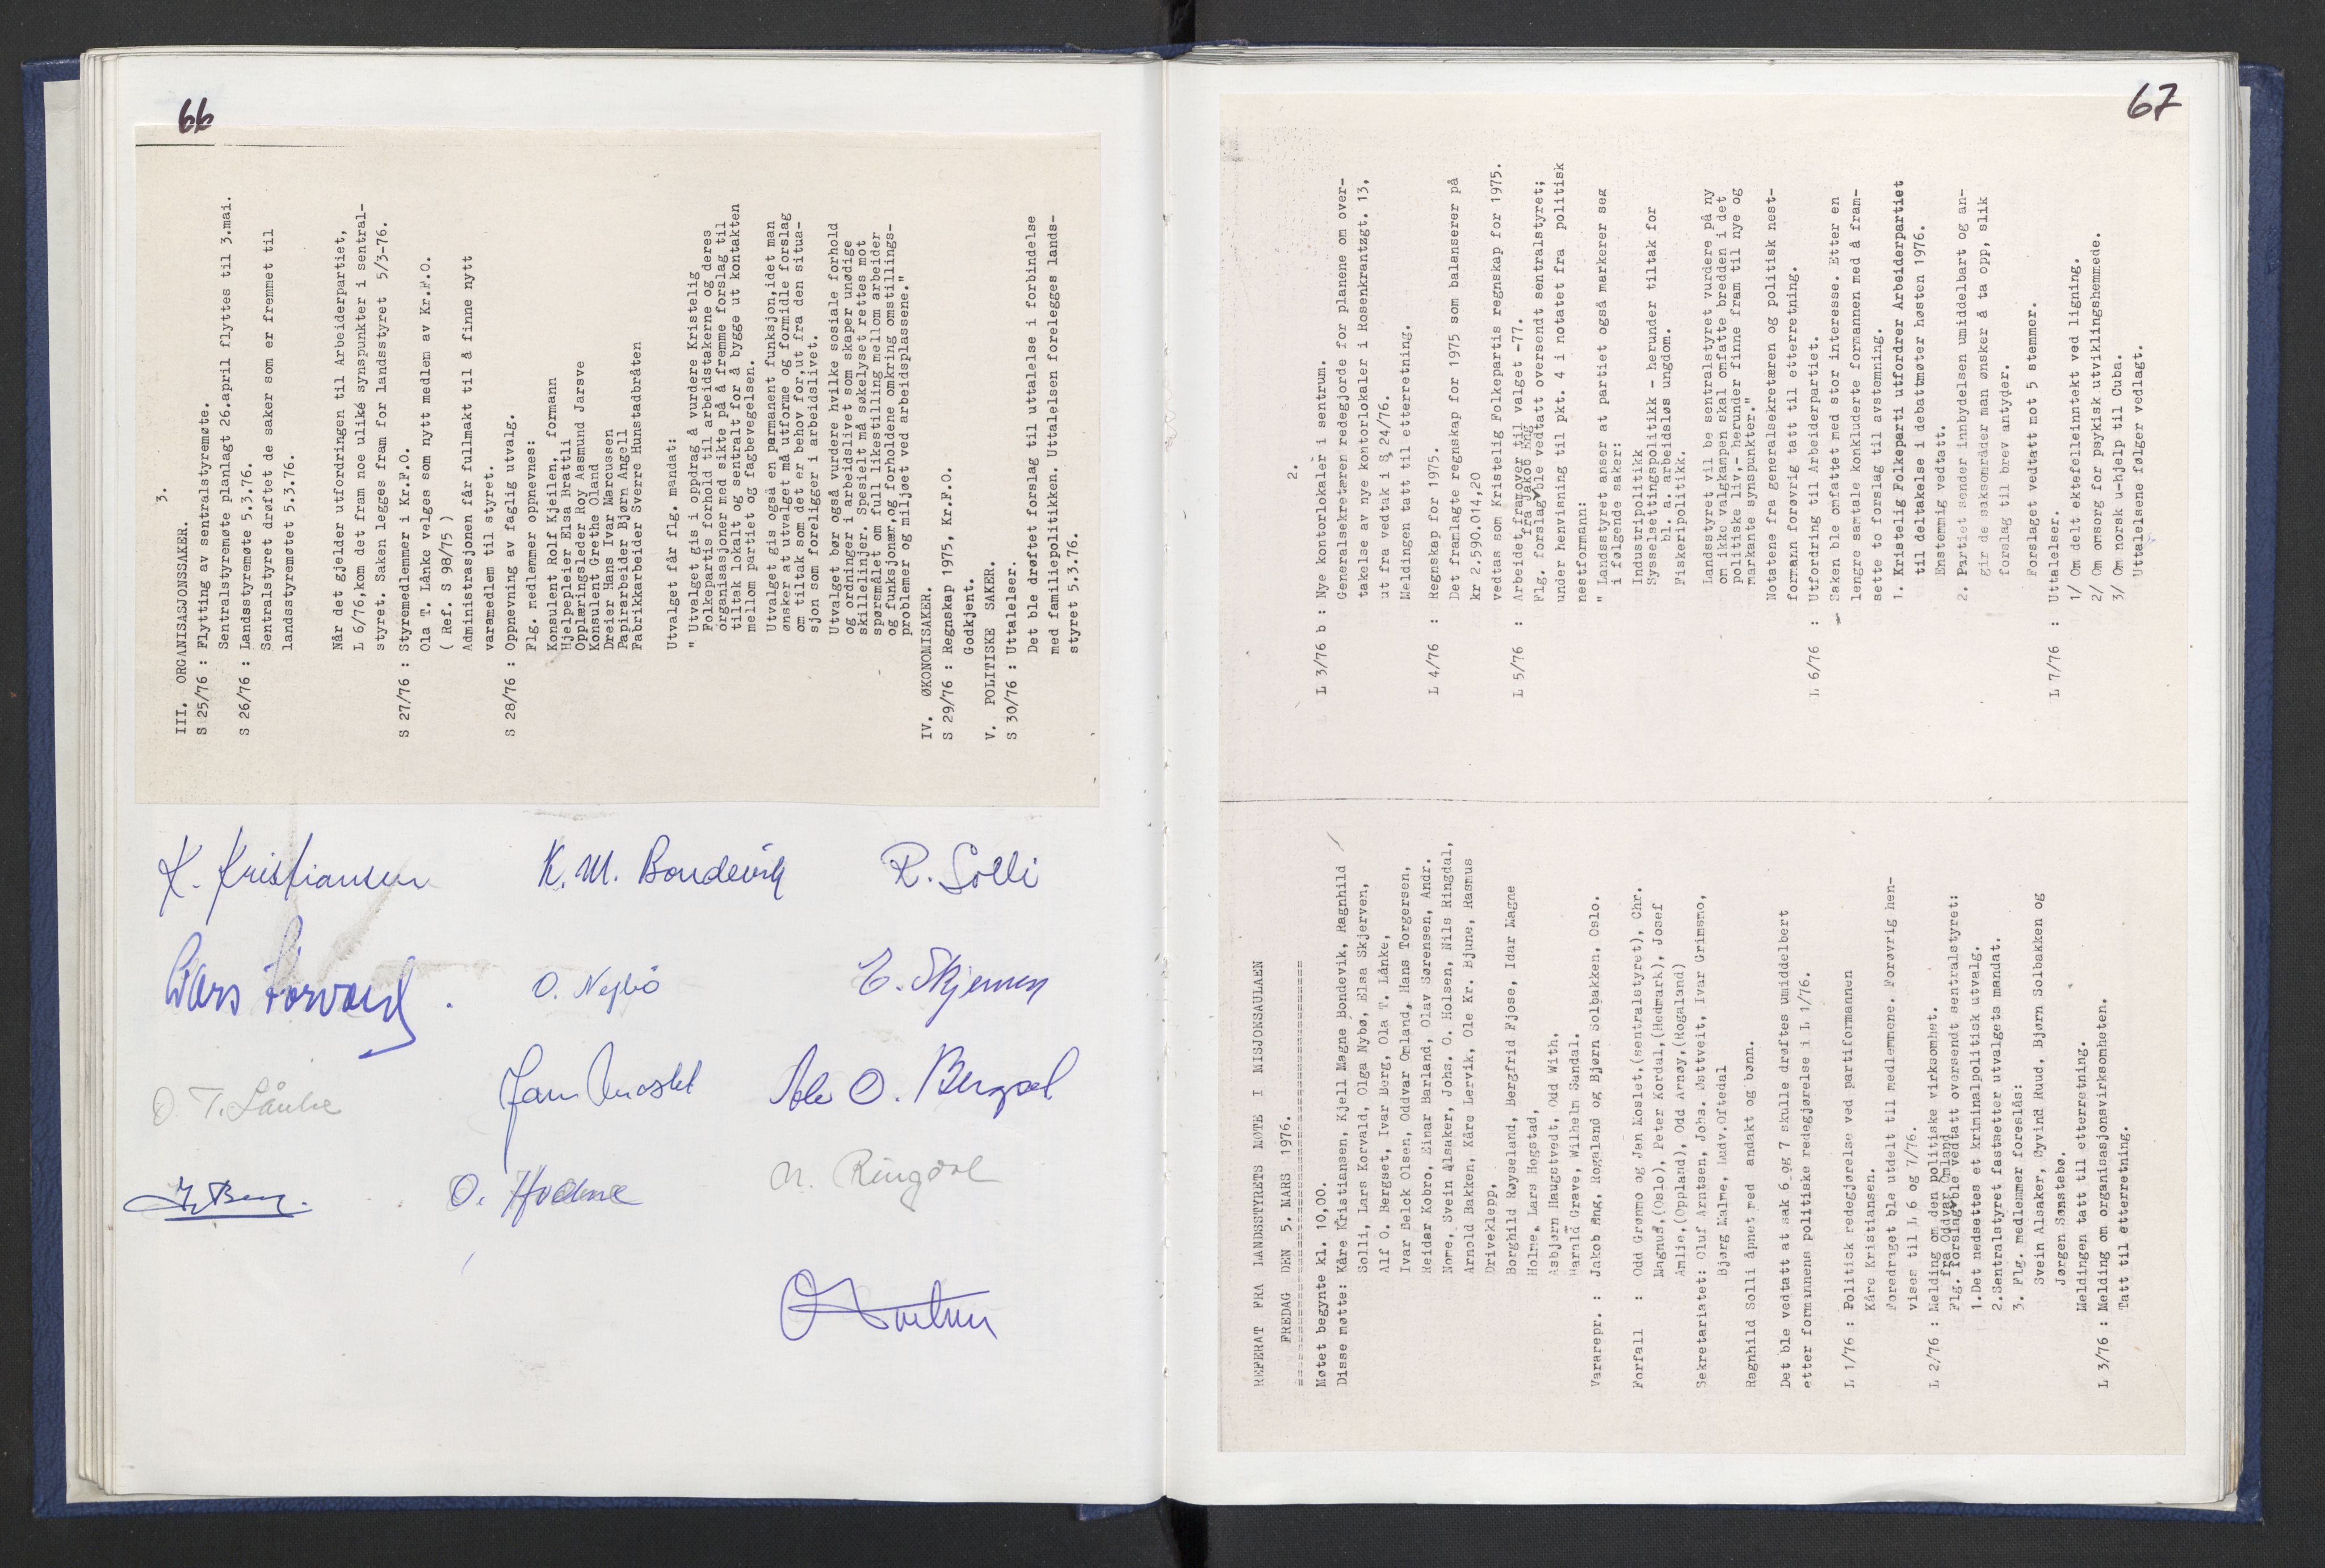 66
3.
III. ORGANISASJONSSAKER.
S 25/76 : Flytting av sentralstyremøte.
Sentralstyremøte planlagt 26.april flyttes til 3.mai.
S 26/76 : Landsstyremøte 5.3.76.
Sentralstyret drøftet de saker som er fremmet til
landsstyremøtet 5.3.76.
Når det gjelder utfordringen til Arbeiderpartiet,
L 6/76,kom det fram noe ulike synspunkter i sentral-
styret. Saken legges fram for landsstyret 5/3-76.
S 27/76 : Styremedlemmer i Kr.F.O.
Ola T. Lånke velges som nytt medlem av Kr.F.O.
( Ref. S 98/75 )
Administrasjonen får fullmakt til å finne nytt
varamedlem til styret.
S 28/76 : Oppnevning av faglig utvalg.
Flg. medlemmer oppnevnes:
Konsulent Rolf Kjeilen, formann
Hjelpepleier Elsa Brattli
Opplæringsleder Roy Aasmund Jarsve
Konsulent Grethe Oland
Dreier Hans Ivar Marcussen
Papirarbeider Bjørn Angell
Fabrikkarbeider Sverre Hunstadbråten
Utvalget får flg. mandat:
" Utvalget gis i oppdrag å vurdere Kristelig
Folkepartis forhold til arbeidstakerne og deres
organisasjoner med sikte på å fremme forslag til
tiltak lokalt og sentralt for å bygge ut kontakten
mellom partiet og fagbevegelsen.
Utvalget gis også en permanent funksjon,idet man
ønsker at utvalget må utforme og formidle forslag
om tiltak som det er behov for,ut fra den situa-
sjon som foreligger i arbeidslivet.
Utvalget bør også vurdere hvilke sosiale forhold
og ordninger i arbeidslivet som skaper unødige
skillelinjer. Spesielt må søkelyset rettes mot
spørsmålet om full likestilling mellom arbeider
og funksjonær,og forholdene omkring omstillings-
problemer og miljøet ved arbeidsplassene."
IV. ØKONOMISAKER.
S 29/76 : Regnskap 1975, Kr.F.O.
Godkjent.
V. POLITISKE SAKER.
S 30/76 : Uttalelser.
Det ble drøftet forslag til uttalelse i forbindelse
med familiepolitikken. Uttalelsen forelegges lands-
styret 5.3.76.
K. Kristiansen
K. M. Bondevik
R. Solli
Lars Korvald
O. Nybø
E. Skjerven
O. T. Lånke
Jan Moslet
Alf O. Bergset
I. Berg.
O.
N. Ringdal
67
REFERAT FRA LANDSSTYRETS MØTE I MISJONSAULAEN
FREDAG DEN 5. MARS 1976.
Møtet begynte kl. 10,00.
Disse møtte: Kåre Kristiansen, Kjell Magne Bondevik, Ragnhild
Solli, Lars Korvald, Olga Nybø, Elsa Skjerven,
Alf O. Bergset, Ivar Berg, Ola T. Lånke,
Ivar Belck Olsen, Oddvar Omland, Hans Torgersen,
Reidar Kobro, Einar Barland, Olav Sørensen, Andr.
Nome, Svein Alsaker, Johs. O. Holsen, Nils Ringdal,
Arnold Bakken, Kåre Lervik, Ole Kr. Bjune, Rasmus
Driveklepp,
Borghild Røyseland, Bergfrid Fjose, Idar Magne
Holme, Lars Hogstad,
Asbjørn Haugstvedt, Odd With,
Harald Grave, Wilhelm Sandal.
Vararepr. : Jakob Eng, Rogaland og Bjørn Solbakken, Oslo.
Forfall : Odd Grønmo og Jan Moslet,(sentralstyret), Chr.
Magnus,(Oslo), Peter Kordal,(Hedmark), Josef
Amlie,(Oppland), Odd Arnøy,(Rogaland)
Sekretariatet: Oluf Arntsen, Johs. Østtveit, Ivar Grimsmo,
Bjørg Malme, Ludv.Oftedal
Ragnhild Solli åpnet med andakt og bønn.
Det ble vedtatt at sak 6 og 7 skulle drøftes umiddelbert
etter formannens politiske redegjørelse i L 1/76.
L 1/76 : Politisk redegjørelse ved partiformannen
Kåre Kristiansen.
Foredraget ble utdelt til medlemmene. Forøvrig hen-
vises til L 6 og 7/76.
L 2/76 : Melding om den politiske virksomhet.
fra Oddvar Omland
Flg. forslag ble vedtatt oversendt sentralstyret:
1.Det nedsettes et kriminalpolitisk utvalg.
2.Sentralstyret fastsetter utvalgets mandat.
3. Flg. medlemmer foreslås:
Svein Alsaker, Øyvind Ruud, Bjørn Solbakken og
Jørgen Sønstebø.
Meldingen tatt til etterretning.
L 3/76 : Melding om organisasjonsvirksomheten.
Tatt til etterretning.
2.
L 3/76 b : Nye kontorlokaler i sentrum.
Generalsekretæren redegjorde for planene om over-
takelse av nye kontorlokaler i Rosenkrantzgt. 13,
ut fra vedtak i S 24/76.
Meldingen tatt til etterretning.
L 4/76 : Regnskap for 1975.
Det framlagte regnskap for 1975 som balanserer på
kr 2.590.014,20
vedtas som Kristelig Folkepartis regnskap for 1975.
L 5/76 : Arbeidet framover til valget -77.
fra Jakob Eng
Flg. forslag ble vedtatt oversendt sentralstyret;
under henvisning til pkt. 4 i notatet fra politisk
nestformann:
" Landsstyret anser at partiet også markerer seg
i følgende saker:
Industripolitikk
Sysselsettingspolitikk - herunder tiltak for
bl. a. arbeidsløs ungdom.
Fiskeripolitikk.
Landsstyret vil be sentralstyret vurdere på ny
om ikke valgkampen skal omfatte bredden i det
politiske liv,- herunder finne fram til nye og
markante synspunkter."
Notatene fra generalsekretæren og politisk nest-
formann forøvrig tatt til etterretning.
L 6/76 : Utfordring til Arbeiderpartiet.
Saken ble omfattet med stor interesse. Etter en
lengre samtale konkluderte formannen med å fram-
sette to forslag til avstemning.
1. Kristelig Folkeparti utfordrer Arbeiderpartiet
til deltakelse i debattmøter høsten 1976.
Enstemmig vedtatt.
2. Partiet sender innbydelsen umiddelbart og an-
gir de saksområder man ønsker å ta opp, slik
forslag til brev antyder.
Forslaget vedtatt mot 5 stemmer.
L 7/76 : Uttalelser.
1/ Om delt ektefelleinntekt ved ligning.
2/ Om omsorg for psykisk utviklingshemmede.
3/ Om norsk u-hjelp til Cuba.
Uttalelsene følger vedlagt.